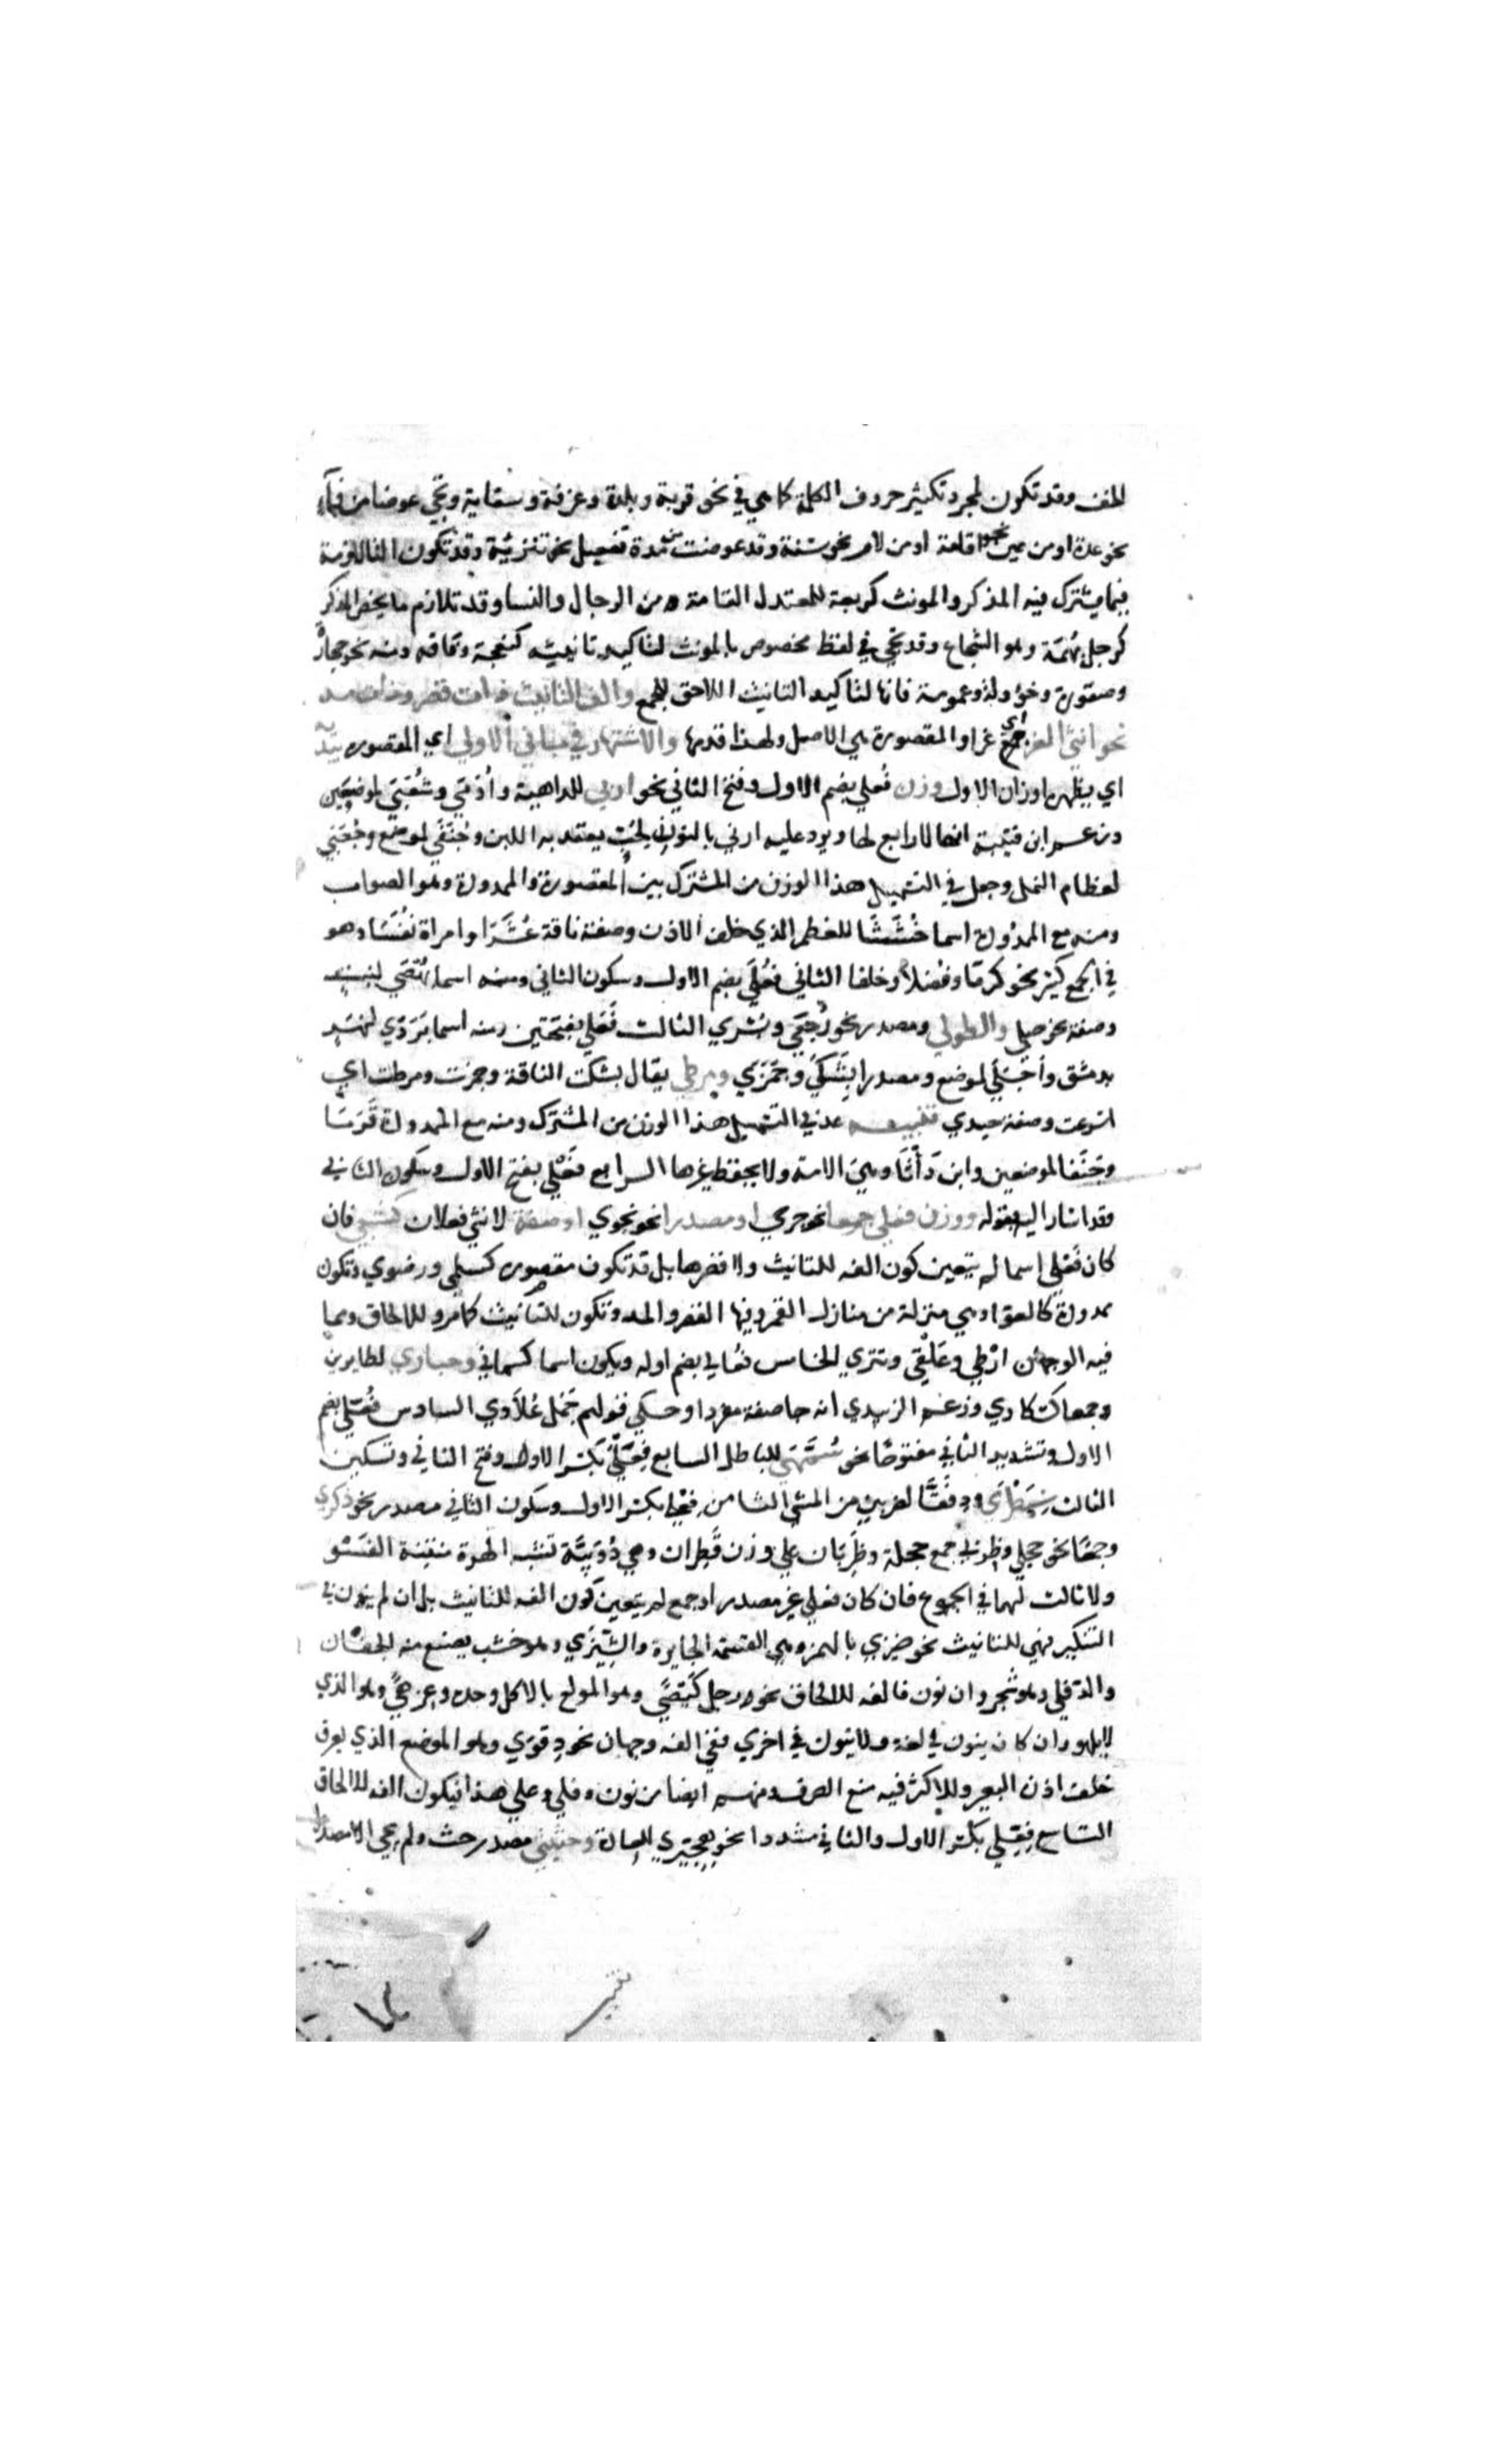 للخف وقد تكون لمجرد تكثير حروف الكلمة كما هي في نحو قرية وبلدة وغرفة وسقاية وتجي عوضا من فاء
نحو عدة او من عين نحو اقامة او من لام نحو سنة وقد عوضت من مدة تفعيل نحو تنزية وقد تكون التا لازمة
فيما يشترك فيه المذكر والمونث كربعة للمعتدل القامة من الرجال والنسا وقد تلازم ما يخص المذكر
كرجل بهمة وهو الشجاع وقد تجي في لفظ مخصوص بالمونث لتاكيد تانيثه كنعجة وناقة ومنه نحو حجارة
وصقورة وخوولة وعمومة فانها لتاكيد التانيث اللاحق للجمع والف التانيث ذات قصر وذات مد
نحو انثى الغر اي غرا والمقصورة هي الاصل ولهذا قدمها والاشتهار في مباني الاولى اي المقصورة يبديه
اي يظهره اوزان الاول وزن فُعلي بضم الاول وفتح الثاني نحو اربي للداهية واُدَمَي وشُعَبَي لموضعين
وزعم ابن قتيبة انها لا رابع لها ويرد عليه ارني بالنون لحب يعقد به اللبن وجُنَفَي لموضع وجُعَبَي
لعظام النمل وجعل في التسهيل هذا الوزن من المشترك بين المقصورة والممدودة وهو الصواب
ومنه مع الممدودة اسما خُشَشَا للعظم الذي خلف الاذن وصفة ناقة عُشَرَا وامراة نُفَسَا وهو
في الجمع كثير نحو كرما وفضلا وخلفا الثاني فُعْلَي بضم الاول وسكون الثاني ومنه اسما بُهْمَي لنبت
وصفة نحو حبلي والطولي ومصدر نحو رُجعَي وبشري الثالث فَعَلي بفتحتين ومنه اسما بَرَدَي لنهر
بدمشق وأجَلَي لموضع ومصدرا بَشَكَي وجَمَزَي ومرطي يقال بشكت الناقة وجمزت ومرطت اي
اسرعت وصفة حيدي تنبيه عد في التسهيل هذا الوزن من المشترك ومنه مع الممدودة قَرَمَا
وجَنَفا لموضعين وابن دَأَثَا وهي الامة ولا يحفظ غيرها الرابع فَعْلي بفتح الاول وسكون الثاني
وقد اشار اليه بقوله ووزن فعلي جمعا نحو جرحي او مصدرا نحو نجوي او صفة لانثي فعلان كشبعي فان
كان فَعْلي اسما لم يتعين كون الفه للتانيث ولا قصرها بل قد تكون مقصورة كسلمي ورضوي وتكون
ممدودة كالعوا وهي منزلة من منازل القمر وفيها القصر والمد وتكون للتانيث كما مر وللالحاق ومما
فيه الوجهان ارطي وعَلْقَي وتتري الخامس فُعَالي بضم اوله ويكون اسما كسماني وحباري لطايرين
وجمعا كسكاري وزعم الزبيدي انه جا صفة مفردا وحكي قولهم جَمَل عُلاَدي السادس فُعَّلي بضم
الاول وتشديد الثاني مفتوحا نحو سُمَّهَي للباطل السابع فِعَلَّي بكسر الاول وفتح الثاني وتسكين
الثالث ودِفَقَّا لضربين من المشي الثامن فِعْلي بكسر الاول وسكون الثاني مصدر نحو ذكري
وجمعا نحو حجلي وظربي جمع حجلة وظَرِبَان علي وزن قَطِران وهي دُوَيبَّة تشبه الهرة منتنة الفسو
ولا ثالث لهما في الجموع فان كان فعلي غير مصدر او جمع لم يتعين كون الفه للتانيث بل ان لم ينون في
التنكير فهي للتانيث نحو ضيزي بالهمز وهي القسمة الجايرة والشِيزَي وهو خشب يصنع منه الجفان
والدفلي وهو شجر وان نون فالفه للالحاق نحو رجل كِيصًي وهو المولع بالاكل وحده وعزهًي وهو الذي
لا يلهو وان كان ينون في لغة ولا ينون في اخري ففي الفه وجهان نحو ذِفرَي وهو الموضع الذي يعرق
خلف اذن البعير والاكثر فيه منع الصرف ومنهم ايضا من نون دفلي وعلي هذا فيكون الفه للالحاق
التاسع فِعِّلي بكسر الاول والثاني مشددا نحو هِجِّيري للعادة وحثيثي مصدر حث ولم يجي الا مصدرا